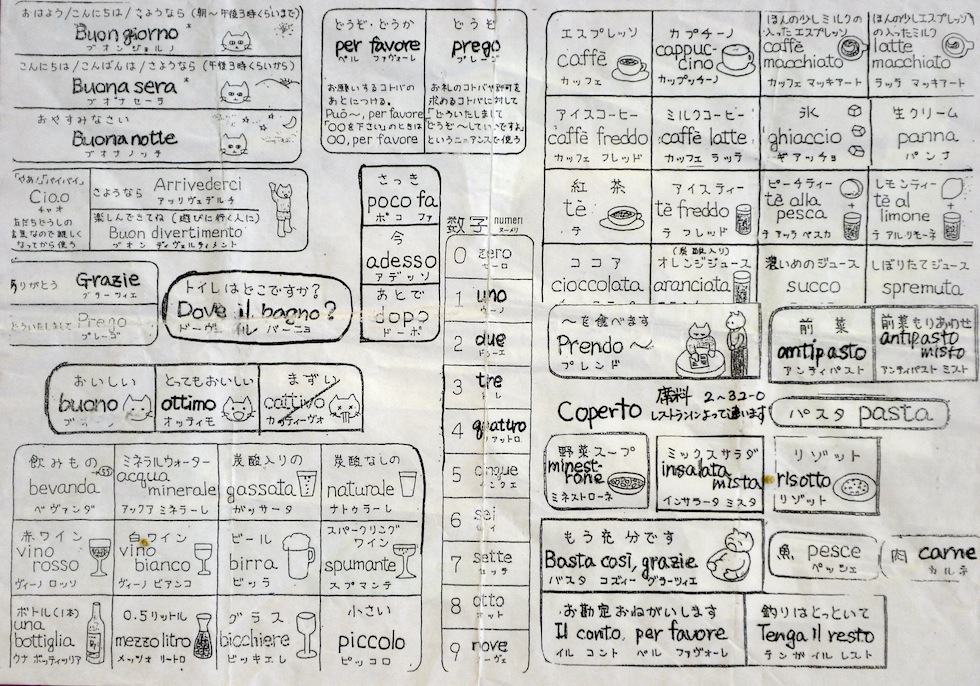 おはよう/こんにちは/さようなら (朝〜午後3時くらいまで)
Buon giorno *
ブオンジョルノ
こんにちは/こんばんは/さようなら (午後3時くらいから)
Buona sera *
ブオナセーラ
おやすみなさい
Buona notte
ブオナノッテ
「やあ」「バイバイ」
Ciao
チャオ
友だちどうしの
言葉なので親しく
なってから使う
さようなら Arrivederci
アッリヴェデルチ
楽しんできてね (遊びに行く人に)
Buon divertimento
ブオン ディヴェルティメント
ありがとう Grazie
グラーツィエ
どういたしまして Prego
プレーゴ
トイレはどこですか?
Dove il bagno?
ドーヴェ イル バーニョ
おいしい
buono
とってもおいしい
ottimo
オッティモ
まずい
cattivo
カッティーヴォ
どうぞ・どうか
per favore
ペル ファヴォーレ
お願いするコトバの
あとにつける。
Può〜, per favore
「〇〇を下さい」のときは
〇〇, per favore
どうぞ
prego
プレーゴ
お礼のコトバや許可を
求めるコトバに対して
「どういたしまして
どうぞ〜していいですよ」
というニュアンスを使う
さっき
poco fa
ポコ ファ
今
adesso
アデッソ
あとで
dopo
ドーポ
数字 numeri
ヌーメリ
0 zero
ゼーロ
1 uno
ウーノ
2 due
ドゥーエ
3 tre
トレ
4 quattro
クアットロ
5 cinque
チンクエ
6 sei
セイ
7 sette
セッテ
8 otto
オット
9 nove
ノーヴェ
飲みもの
bevanda
ベヴァンダ
ミネラルウォーター
acqua
minerale
アックア ミネラーレ
炭酸入りの
gassata
ガッサータ
炭酸なしの
naturale
ナトゥラーレ
赤ワイン
vino
rosso
ヴィーノ ロッソ
白ワイン
vino
bianco
ヴィーノ ビアンコ
ビール
birra
ビッラ
スパークリング
ワイン
spumante
スプマンテ
ボトル(1本)
una
bottiglia
ウナ ボッティッリア
0.5リットル
mezzo litro
メッツォ リートロ
グラス
bicchiere
ビッキエレ
小さい
piccolo
ピッコロ
エスプレッソ
caffè
カッフェ
カプチーノ
cappuc-
cino
カップッチーノ
ほんの少しミルクの
入ったエスプレッソ
caffè
macchiato
カッフェ マッキアート
ほんの少しエスプレッソ
の入ったミルク
latte
macchiato
ラッテ マッキアート
アイスコーヒー
caffè freddo
カッフェ フレッド
ミルクコーヒー
caffè latte
カッフェ ラッテ
氷
ghiaccio
ギアッチョ
生クリーム
panna
パンナ
紅茶
tè
テ
アイスティー
tè freddo
テ フレッド
ピーチティー
tè alla
pesca
テ アッラ ペスカ
レモンティー
tè al
limone
テ アル リモーネ
ココア
cioccolata
(炭酸入り)
オレンジジュース
aranciata
濃いめのジュース
succo
しぼりたてジュース
spremuta
〜を食べます
Prendo〜
プレンド
前菜
antipasto
アンティパスト
前菜もりあわせ
antipasto
misto
アンティパスト ミスト
Coperto 席料 2〜3ユーロ
レストランによって違います
パスタ pasta
野菜スープ
minest-
rone
ミネストローネ
ミックスサラダ
insalata
mista
インサラータ ミスタ
リゾット
risotto
リゾット
もう充分です
Basta così, grazie
バスタ コズィー グラーツィエ
魚 pesce
ペッシェ
肉 carne
カルネ
お勘定おねがいします
Il conto, per favore
イル コント ペル ファヴォーレ
釣りはとっといて
Tenga il resto
テンガ イル レスト